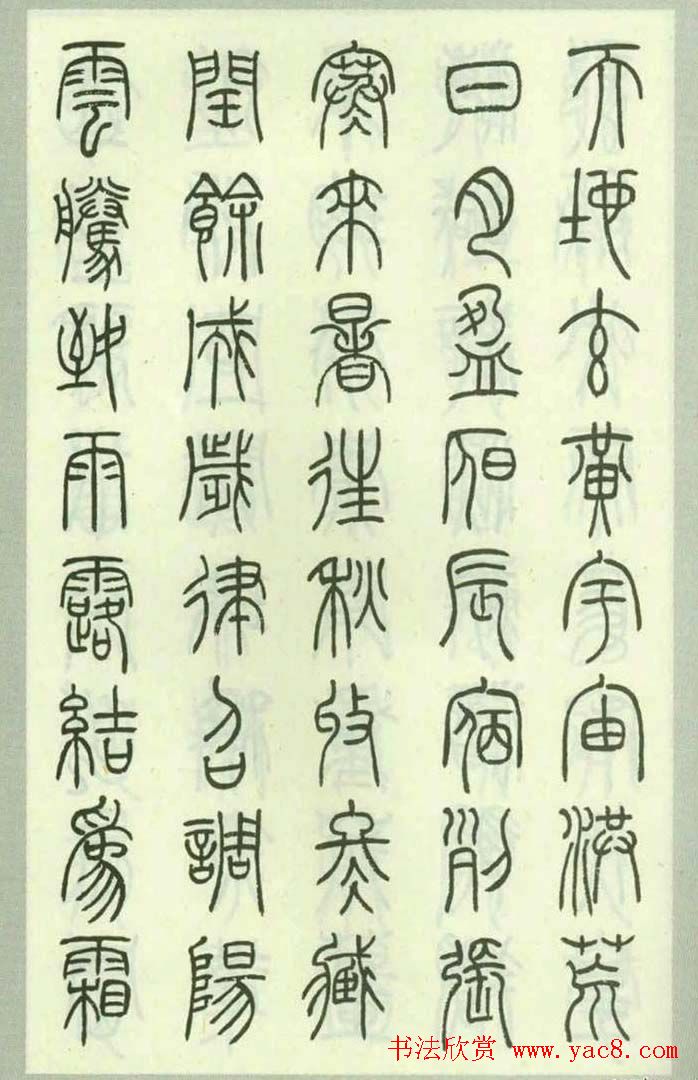 天地玄黃宇宙洪荒
日月盈昃辰宿列張
寒來暑往秋收冬藏
閏餘成歲律召調陽
雲騰致雨露結為霜
书法欣赏 www.yac8.com